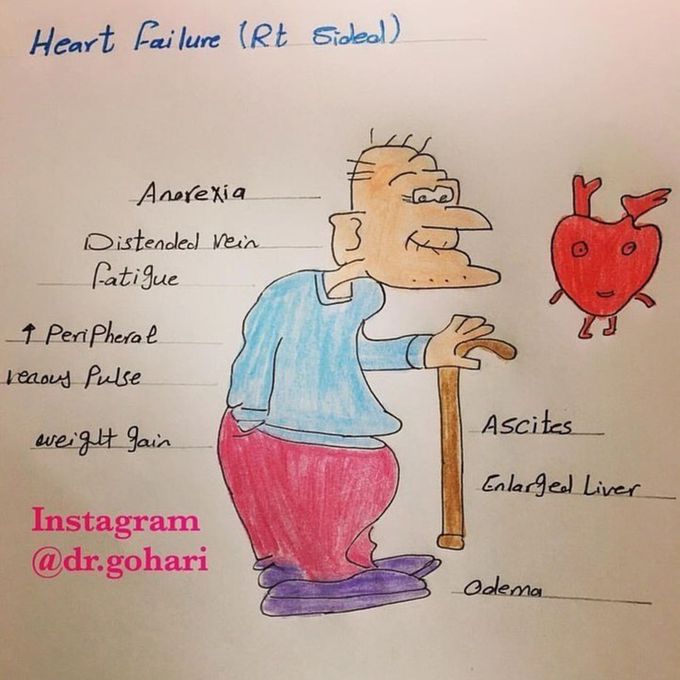 Heart Failure (Rt Sided)
Anorexia
Distended vein
Fatigue
↑ Peripheral
venous Pulse
weight gain
Ascites
Enlarged Liver
Odema
Instagram
@dr.gohari